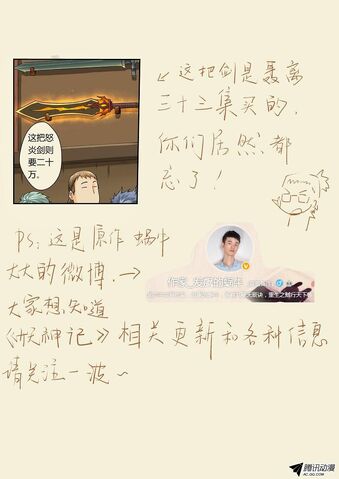 这把怒
炎剑则
要二十
万。
↙这把剑是聂离
三十三集买的,
你们居然都
忘了!
PS:这是原作蜗牛
大大的微博.→
大家想知道
《妖神记》相关更新和各种信息
请关注一波~
作家_发飙的蜗牛
腾讯动漫
AC.QQ.COM